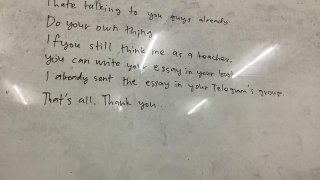 I hate talking to you guys already
Do your own thing.
If you still think me as a teacher.
you can write your essay in your book
I already sent the essay in your Telegram's group.
That's all. Thank you..